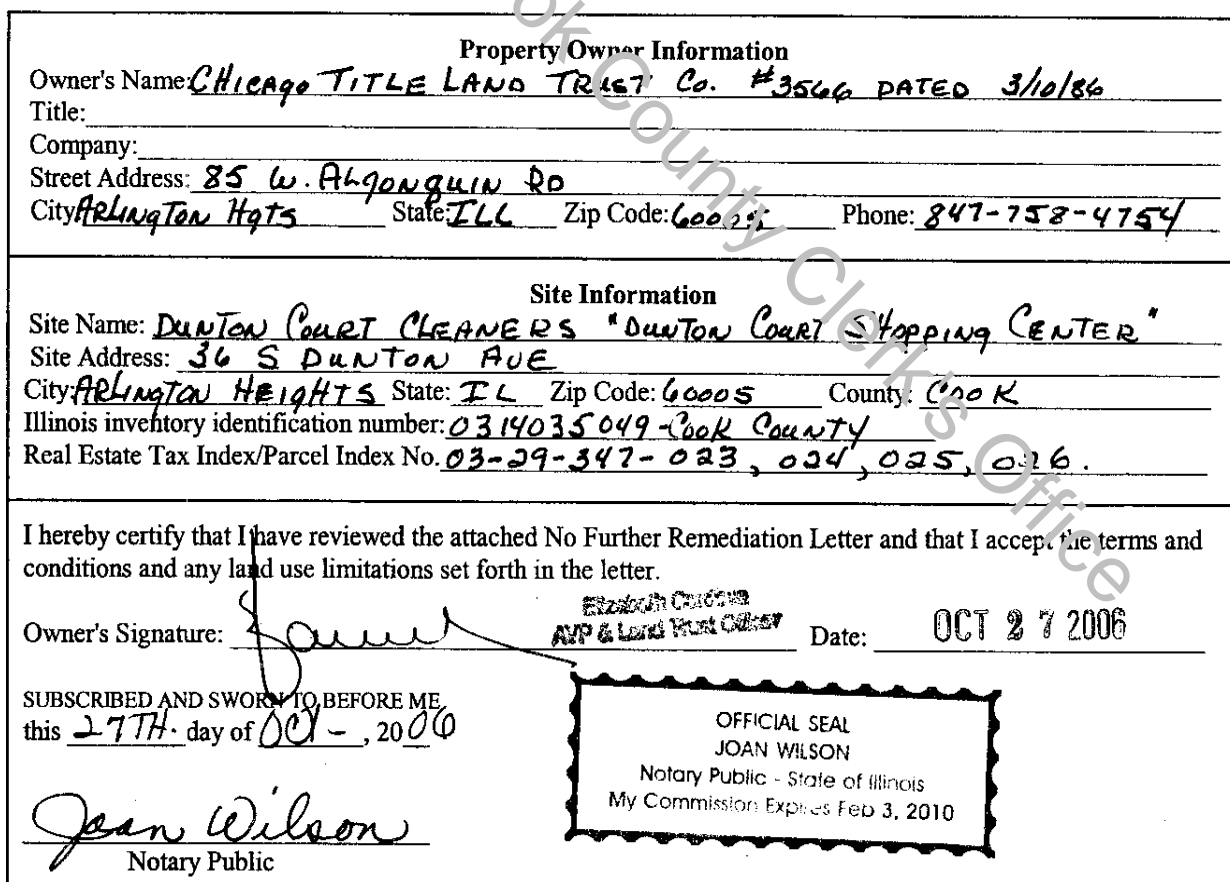 Property Owner Information
Owner's Name: CHICAgo TITLE LAND TRUST Co. #3566 DATED 3/10/86
Title:
Company:
Street Address: 85 W. ALgONQUIN RD
City: ARLINgTON HgTS State: ILL Zip Code: Phone: 847-758-4754
Site Information
Site Name: DUNTON COURT CLEANERS "DUNTON COURT SHOPPINg CENTER"
Site Address: 36 S DUNTON AVE
City: ARLINgTON HEIgHTS State: IL Zip Code: 60005 County: COOK
Illinois inventory identification number: 0314035049-COOK COUNTY
Real Estate Tax Index/Parcel Index No. 03-29-347-023, 024, 025, 026.
I hereby certify that I have reviewed the attached No Further Remediation Letter and that I accept the terms and
conditions and any land use limitations set forth in the letter.
Elizabeth
AVP & Land Trust Officer
Owner's Signature: Date: OCT 27 2006
SUBSCRIBED AND SWORN TO BEFORE ME
this 27TH. day of OCT-, 2006
OFFICIAL SEAL
JOAN WILSON
Notary Public - State of Illinois
My Commission Expires Feb 3, 2010
Joan Wilson
Notary Public
Cook County Clerk's Office